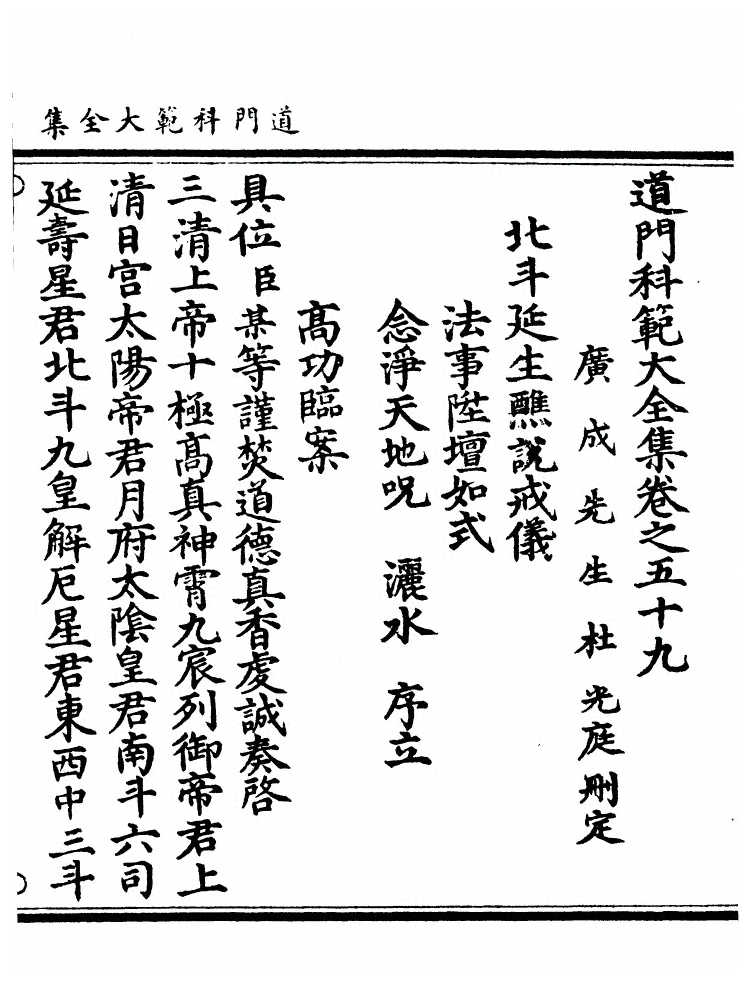 道門科範大全集
道門科範大全集卷之五十九
廣成先生杜光庭刪定
北斗延生醮說戒儀
法事陞壇如式
念淨天地呪 灑水 序立
高功臨案
具位臣某等謹焚道德真香虔誠奏啓
三清上帝十極高真神霄九宸列御帝君上
清日宮太陽帝君月府太陰皇君南斗六司
延壽星君北斗九皇解厄星君東西中三斗